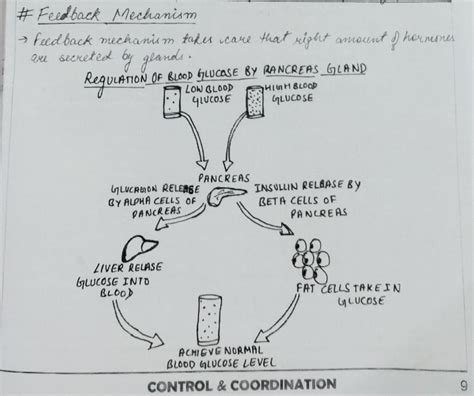 # Feedback Mechanism
→ Feedback mechanism takes care that right amount of hormones
are secreted by glands.
REGULATION OF BLOOD GLUCOSE BY PANCREAS GLAND
LOW BLOOD
GLUCOSE
HIGH BLOOD
GLUCOSE
PANCREAS
GLUCAGON RELEASE
BY ALPHA CELLS OF
PANCREAS
INSULIN RELEASE BY
BETA CELLS OF
PANCREAS
LIVER RELASE
GLUCOSE INTO
BLOOD
FAT CELLS TAKE IN
GLUCOSE
ACHIEVE NORMAL
BLOOD GLUCOSE LEVEL
CONTROL & COORDINATION
9